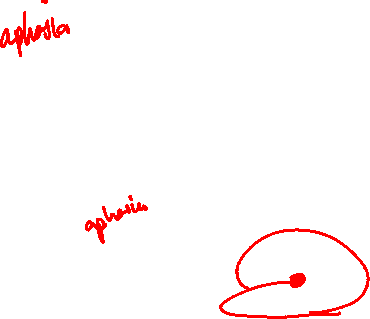 aphasia
aphasia